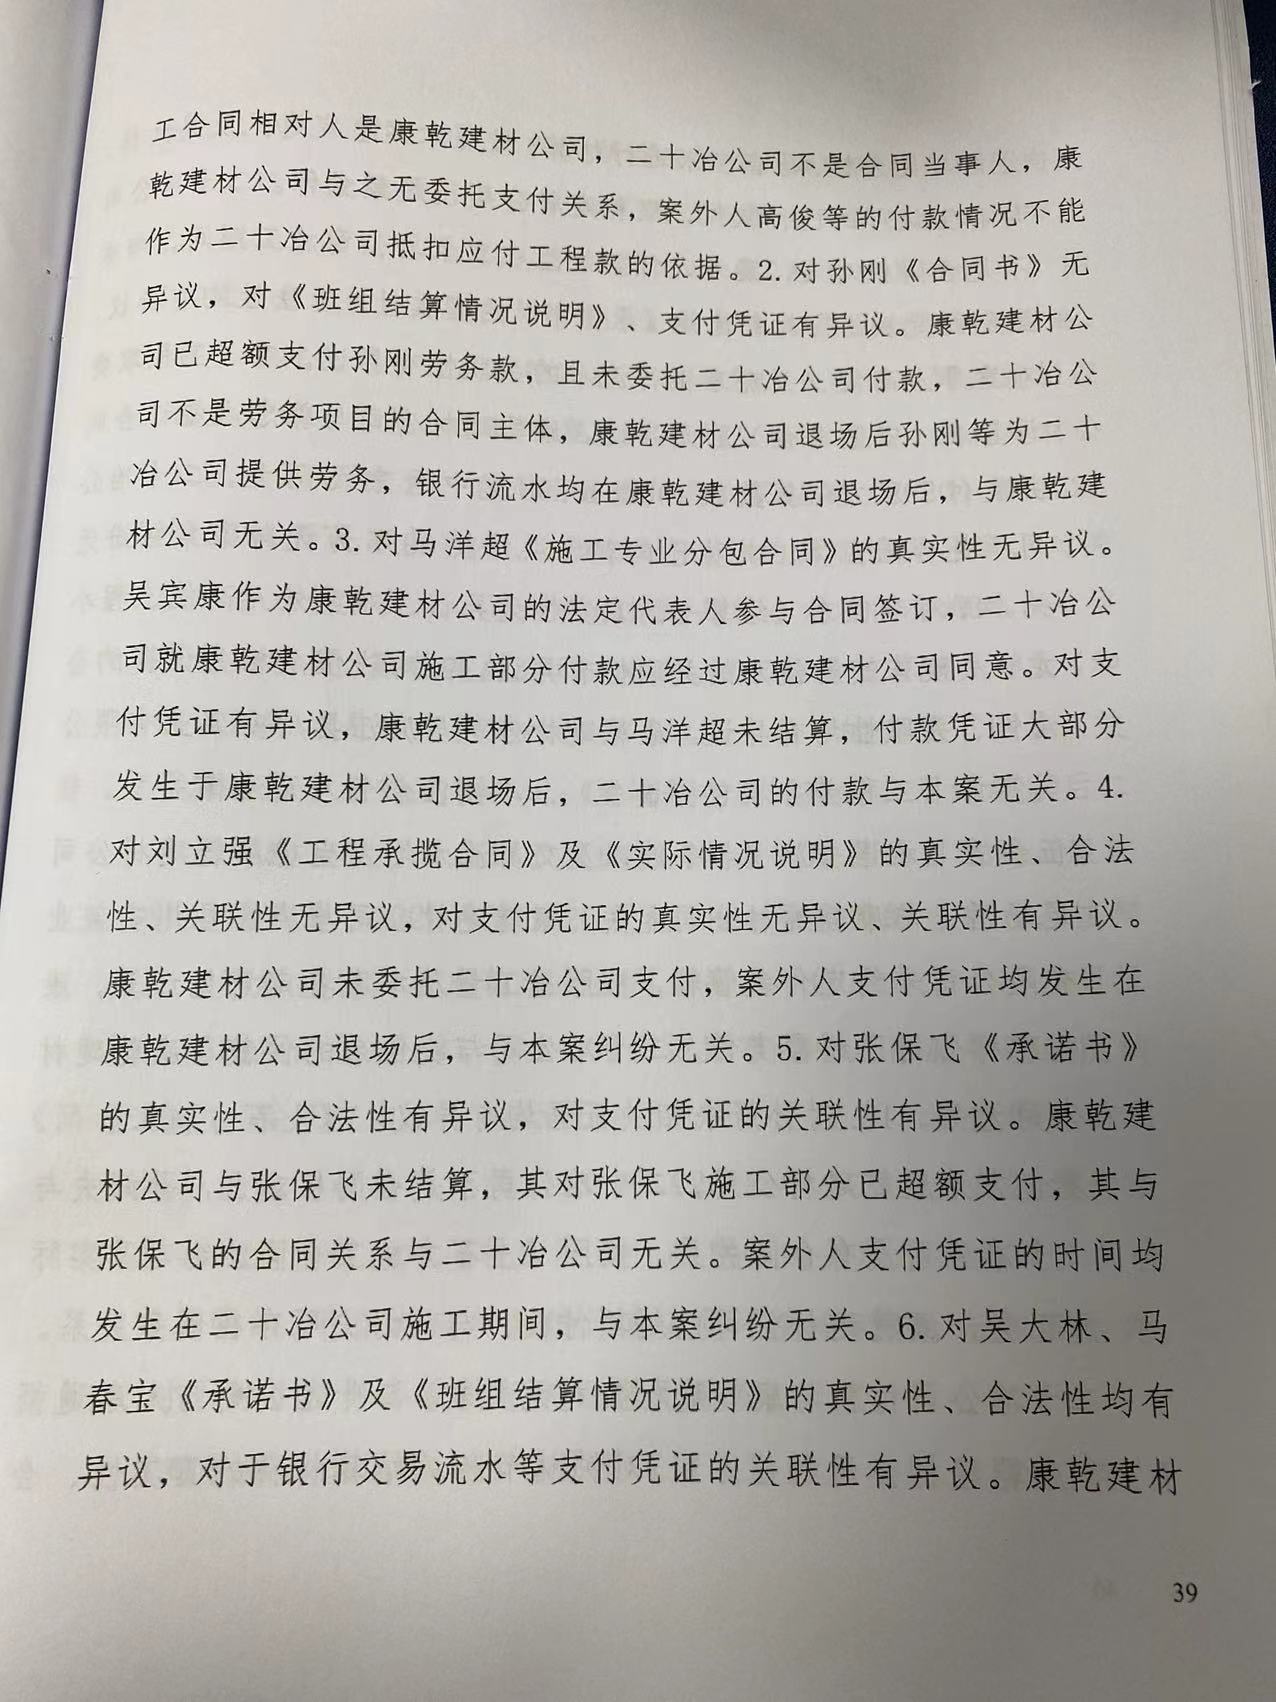 工合同相对人是康乾建材公司，二十冶公司不是合同当事人，康
乾建材公司与之无委托支付关系，案外人高俊等的付款情况不能
作为二十冶公司抵扣应付工程款的依据。2.对孙刚《合同书》无
异议，对《班组结算情况说明》、支付凭证有异议。康乾建材公
司已超额支付孙刚劳务款，且未委托二十冶公司付款，二十冶公
司不是劳务项目的合同主体，康乾建材公司退场后孙刚等为二十
冶公司提供劳务，银行流水均在康乾建材公司退场后，与康乾建
材公司无关。3.对马洋超《施工专业分包合同》的真实性无异议。
吴宾康作为康乾建材公司的法定代表人参与合同签订，二十冶公
司就康乾建材公司施工部分付款应经过康乾建材公司同意。对支
付凭证有异议，康乾建材公司与马洋超未结算，付款凭证大部分
发生于康乾建材公司退场后，二十冶公司的付款与本案无关。4.
对刘立强《工程承揽合同》及《实际情况说明》的真实性、合法
性、关联性无异议，对支付凭证的真实性无异议、关联性有异议。
康乾建材公司未委托二十冶公司支付，案外人支付凭证均发生在
康乾建材公司退场后，与本案纠纷无关。5.对张保飞《承诺书》
的真实性、合法性有异议，对支付凭证的关联性有异议。康乾建
材公司与张保飞未结算，其对张保飞施工部分已超额支付，其与
张保飞的合同关系与二十冶公司无关。案外人支付凭证的时间均
发生在二十冶公司施工期间，与本案纠纷无关。6.对吴大林、马
春宝《承诺书》及《班组结算情况说明》的真实性、合法性均有
异议，对于银行交易流水等支付凭证的关联性有异议。康乾建材
39